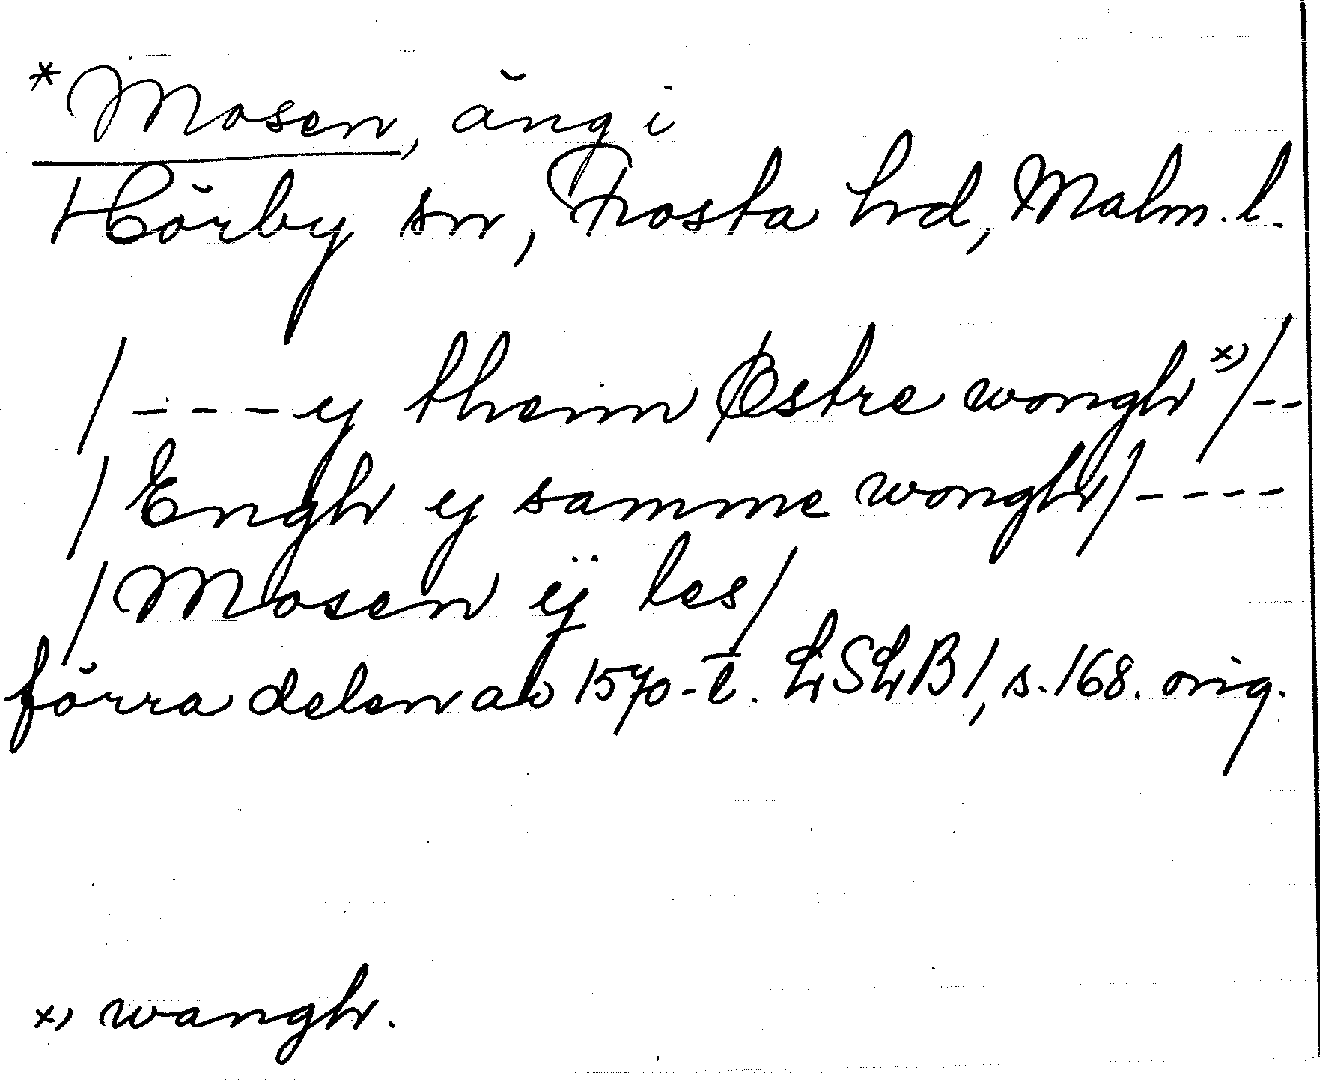 *Mosen, äng i
Hörby sn, Frosta hd, Malm. l.
/ - - - - ey them Østre wongh x) / - -
/ Engh ey samme wongh / - - - -
/ Mosen eÿ les /
förra delen av 1570-t. LSLB 1, s. 168. orig.
x) wangh.